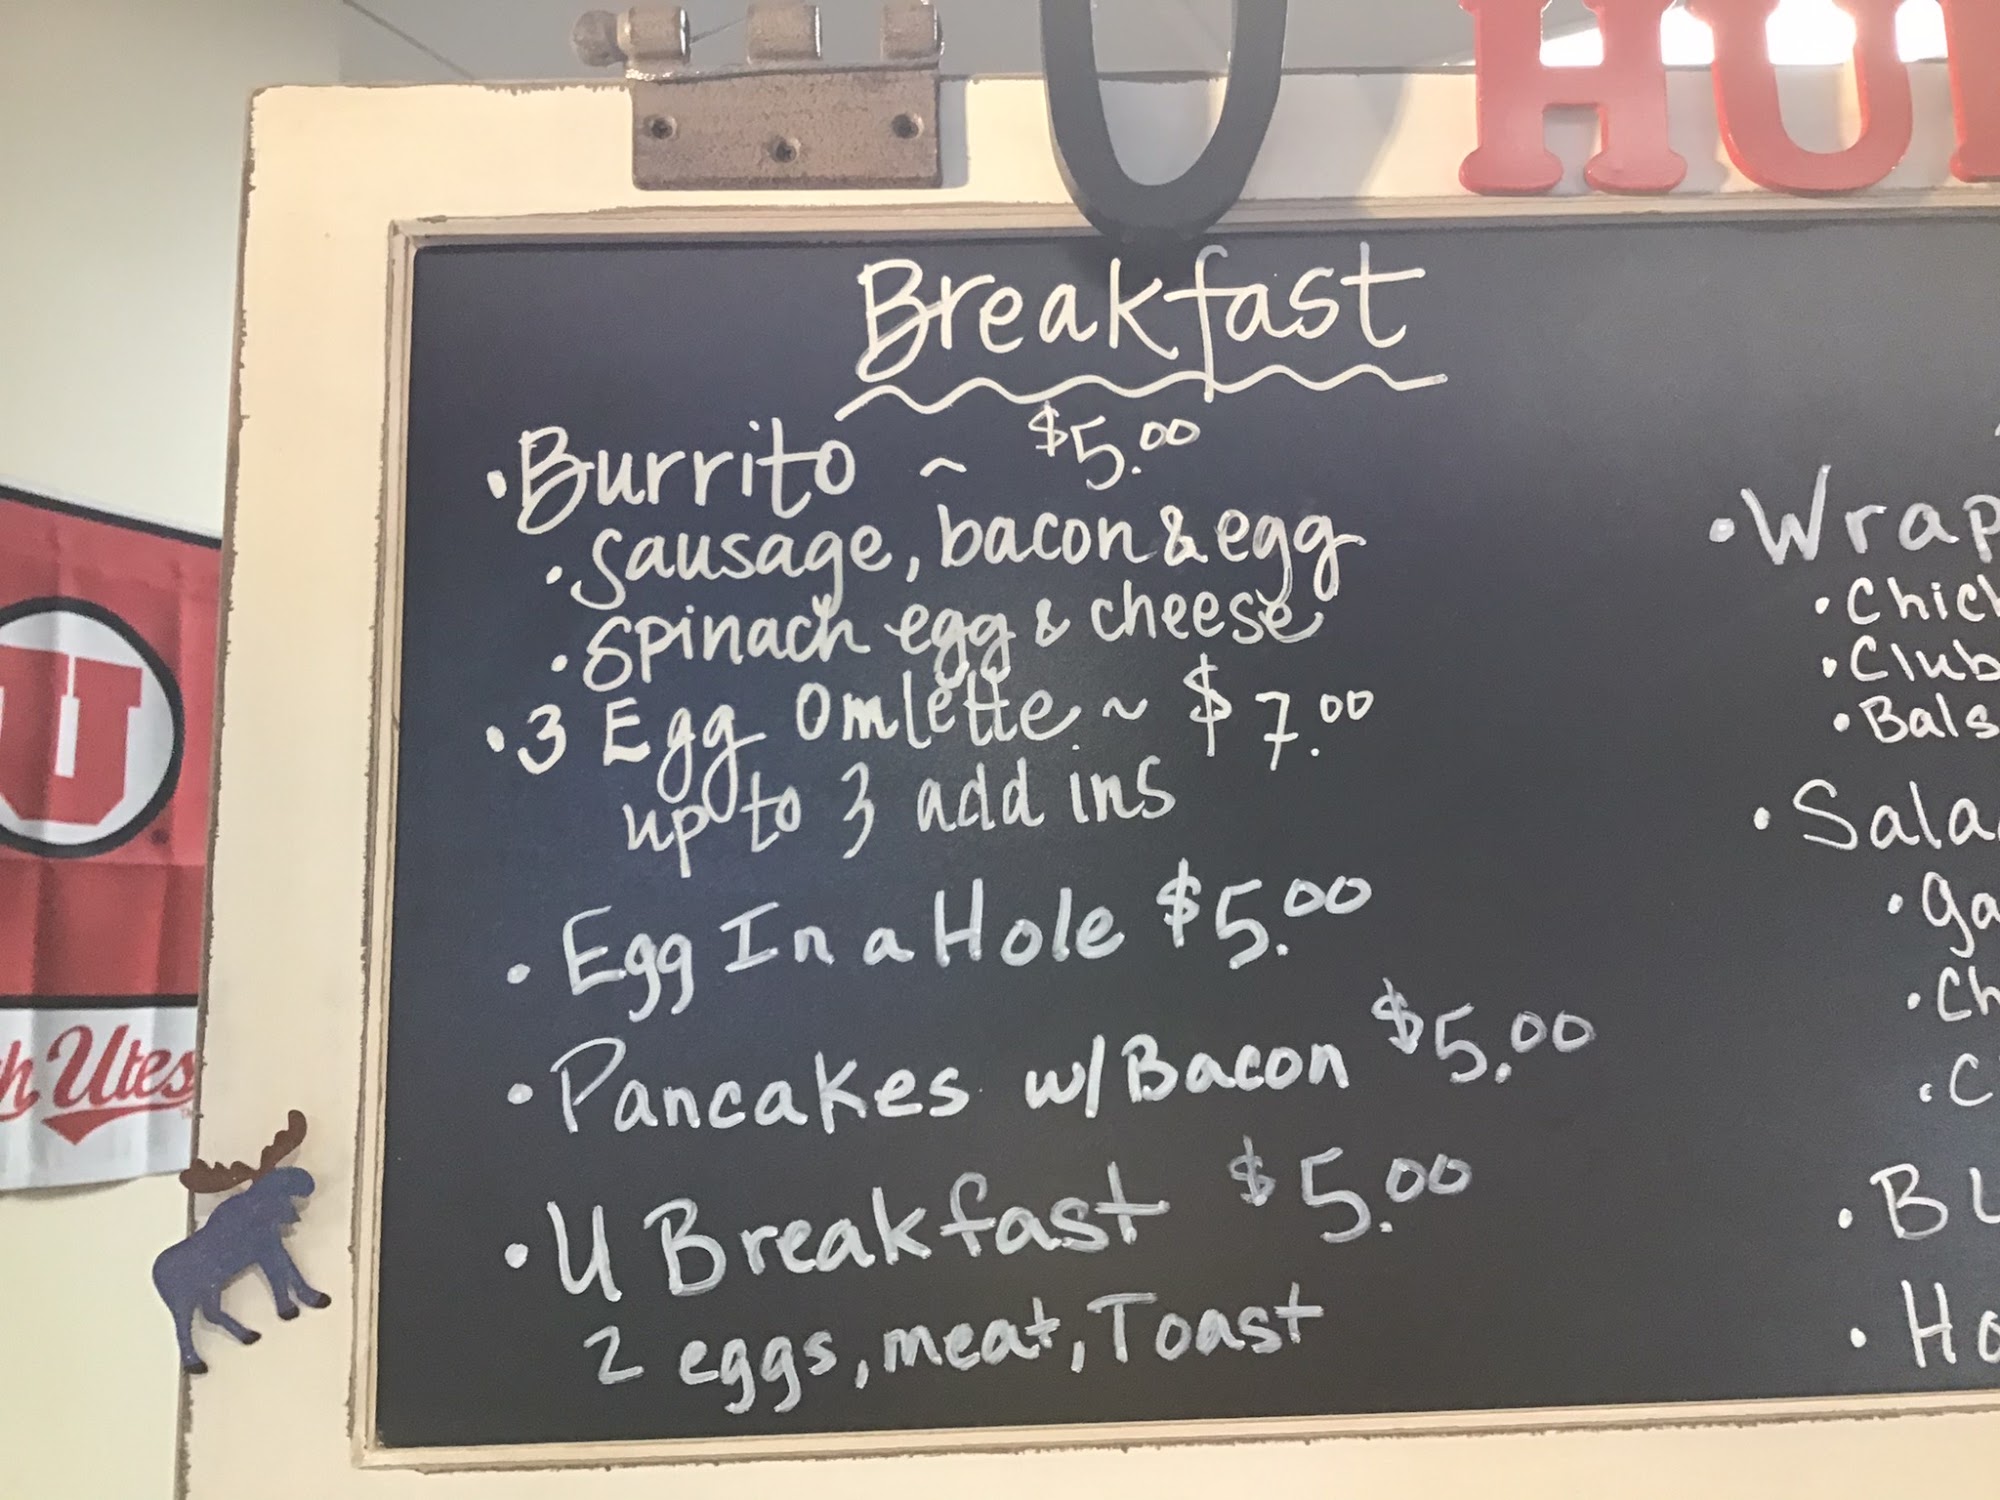 U HU
Breakfast
• Burrito ~ $5.00
• Sausage, bacon & egg
• Spinach egg & cheese
• 3 Egg Omlette ~ $7.00
up to 3 add ins
• Egg In a Hole $5.00
• Pancakes w/ Bacon $5.00
• U Breakfast $5.00
2 eggs, meat, Toast
• Wrap
• Chick
• Club
• Bals
• Sala
• Ga
• Ch
• C
• Bu
• Ho
U
h Utes